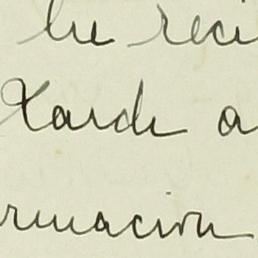 he reci
Tarde a
rmacion